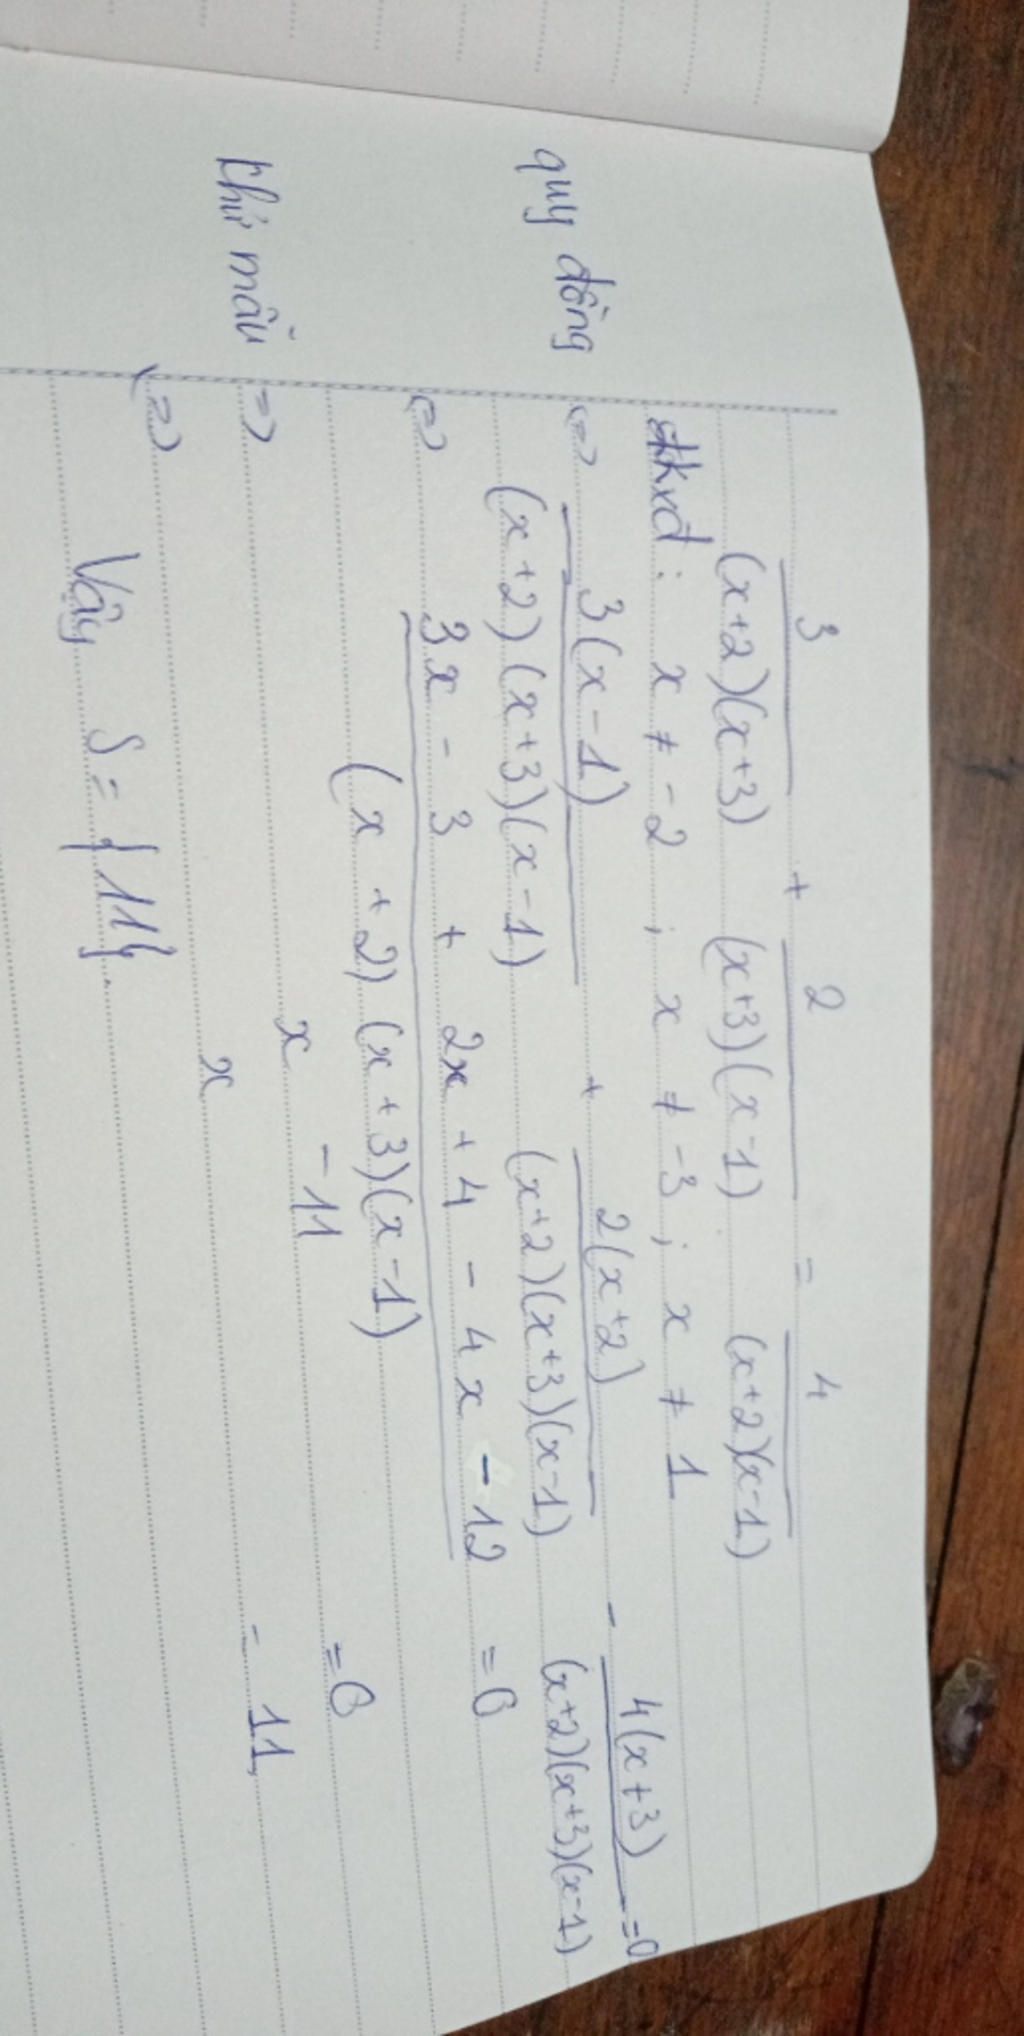 3/((x+2)(x+3)) + 2/((x+3)(x-1)) = 4/((x+2)(x-1))
đkxđ: x ≠ -2 ; x ≠ -3 ; x ≠ 1
quy đồng <=> 3(x-1)/((x+2)(x+3)(x-1)) + 2(x+2)/((x+2)(x+3)(x-1)) - 4(x+3)/((x+2)(x+3)(x-1)) = 0
<=> (3x - 3 + 2x + 4 - 4x - 12)/((x+2)(x+3)(x-1)) = 0
khử mẫu => x - 11 = 0
<=> x = 11
Vậy S = {11}.